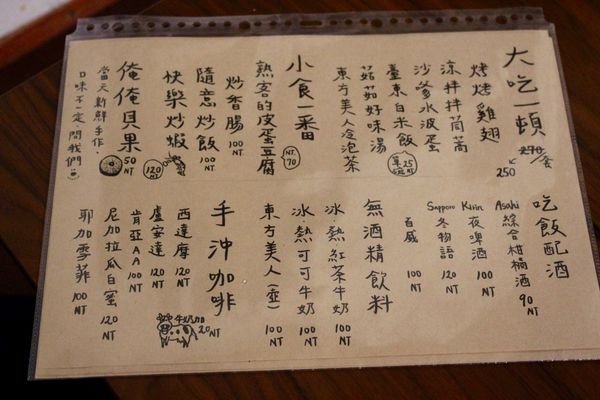 大吃一頓 270/套
250
烤烤雞翅
涼拌拌茼蒿
沙爹水波蛋
臺東白米飯 單點25NT
菇菇好味湯
東方美人冷泡茶
小食一番
熟客的皮蛋豆腐 NT70
炒香腸 100NT
隨意炒飯 100NT
快樂炒蝦 120NT
俺俺貝果 50NT
當天新鮮手作，
口味不一定，問我們
吃飯配酒
Asahi 綜合柑橘酒 90NT
Kirin 夜啤酒 100NT
Sapporo 冬物語 120NT
百威 100NT
無酒精飲料
冰．熱紅茶牛奶 100NT
冰．熱可可牛奶 100NT
東方美人（壺） 100NT
手沖咖啡
牛奶加20NT
西達摩 120NT
盧安達 120NT
肯亞AA 100NT
尼加拉瓜白蜜 120NT
耶加雪菲 100NT